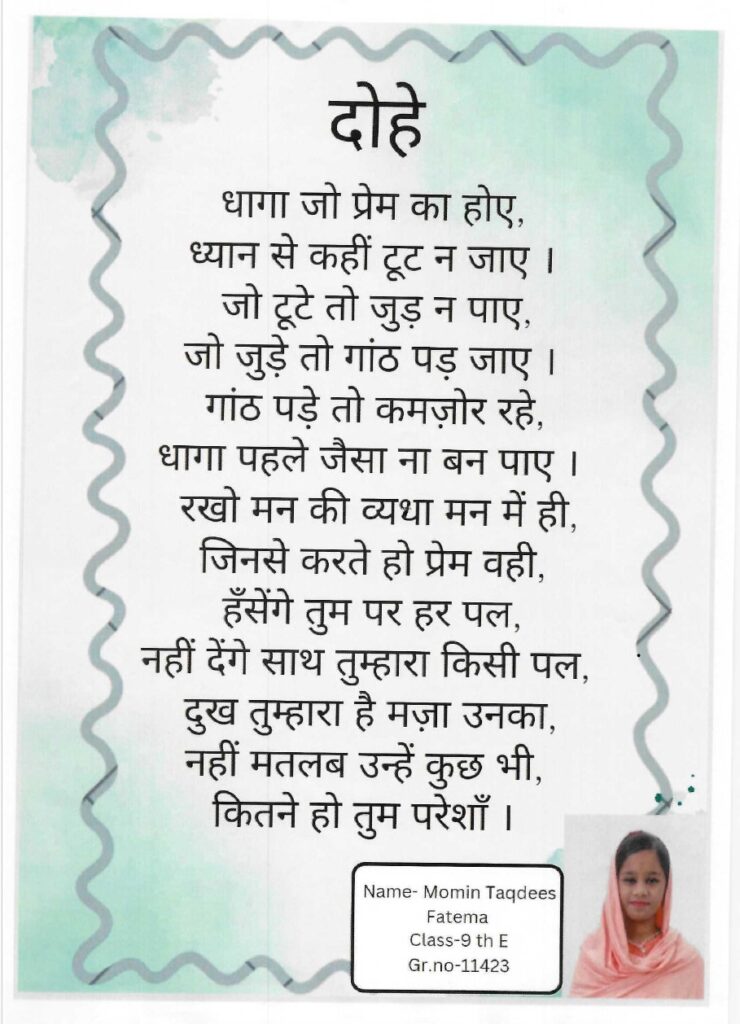 दोहे
धागा जो प्रेम का होए,
ध्यान से कहीं टूट न जाए ।
जो टूटे तो जुड़ न पाए,
जो जुड़े तो गांठ पड़ जाए ।
गांठ पड़े तो कमज़ोर रहे,
धागा पहले जैसा ना बन पाए ।
रखो मन की व्यधा मन में ही,
जिनसे करते हो प्रेम वही,
हँसेंगे तुम पर हर पल,
नहीं देंगे साथ तुम्हारा किसी पल,
दुख तुम्हारा है मज़ा उनका,
नहीं मतलब उन्हें कुछ भी,
कितने हो तुम परेशाँ ।
Name- Momin Taqdees
Fatema
Class-9 th E
Gr.no-11423